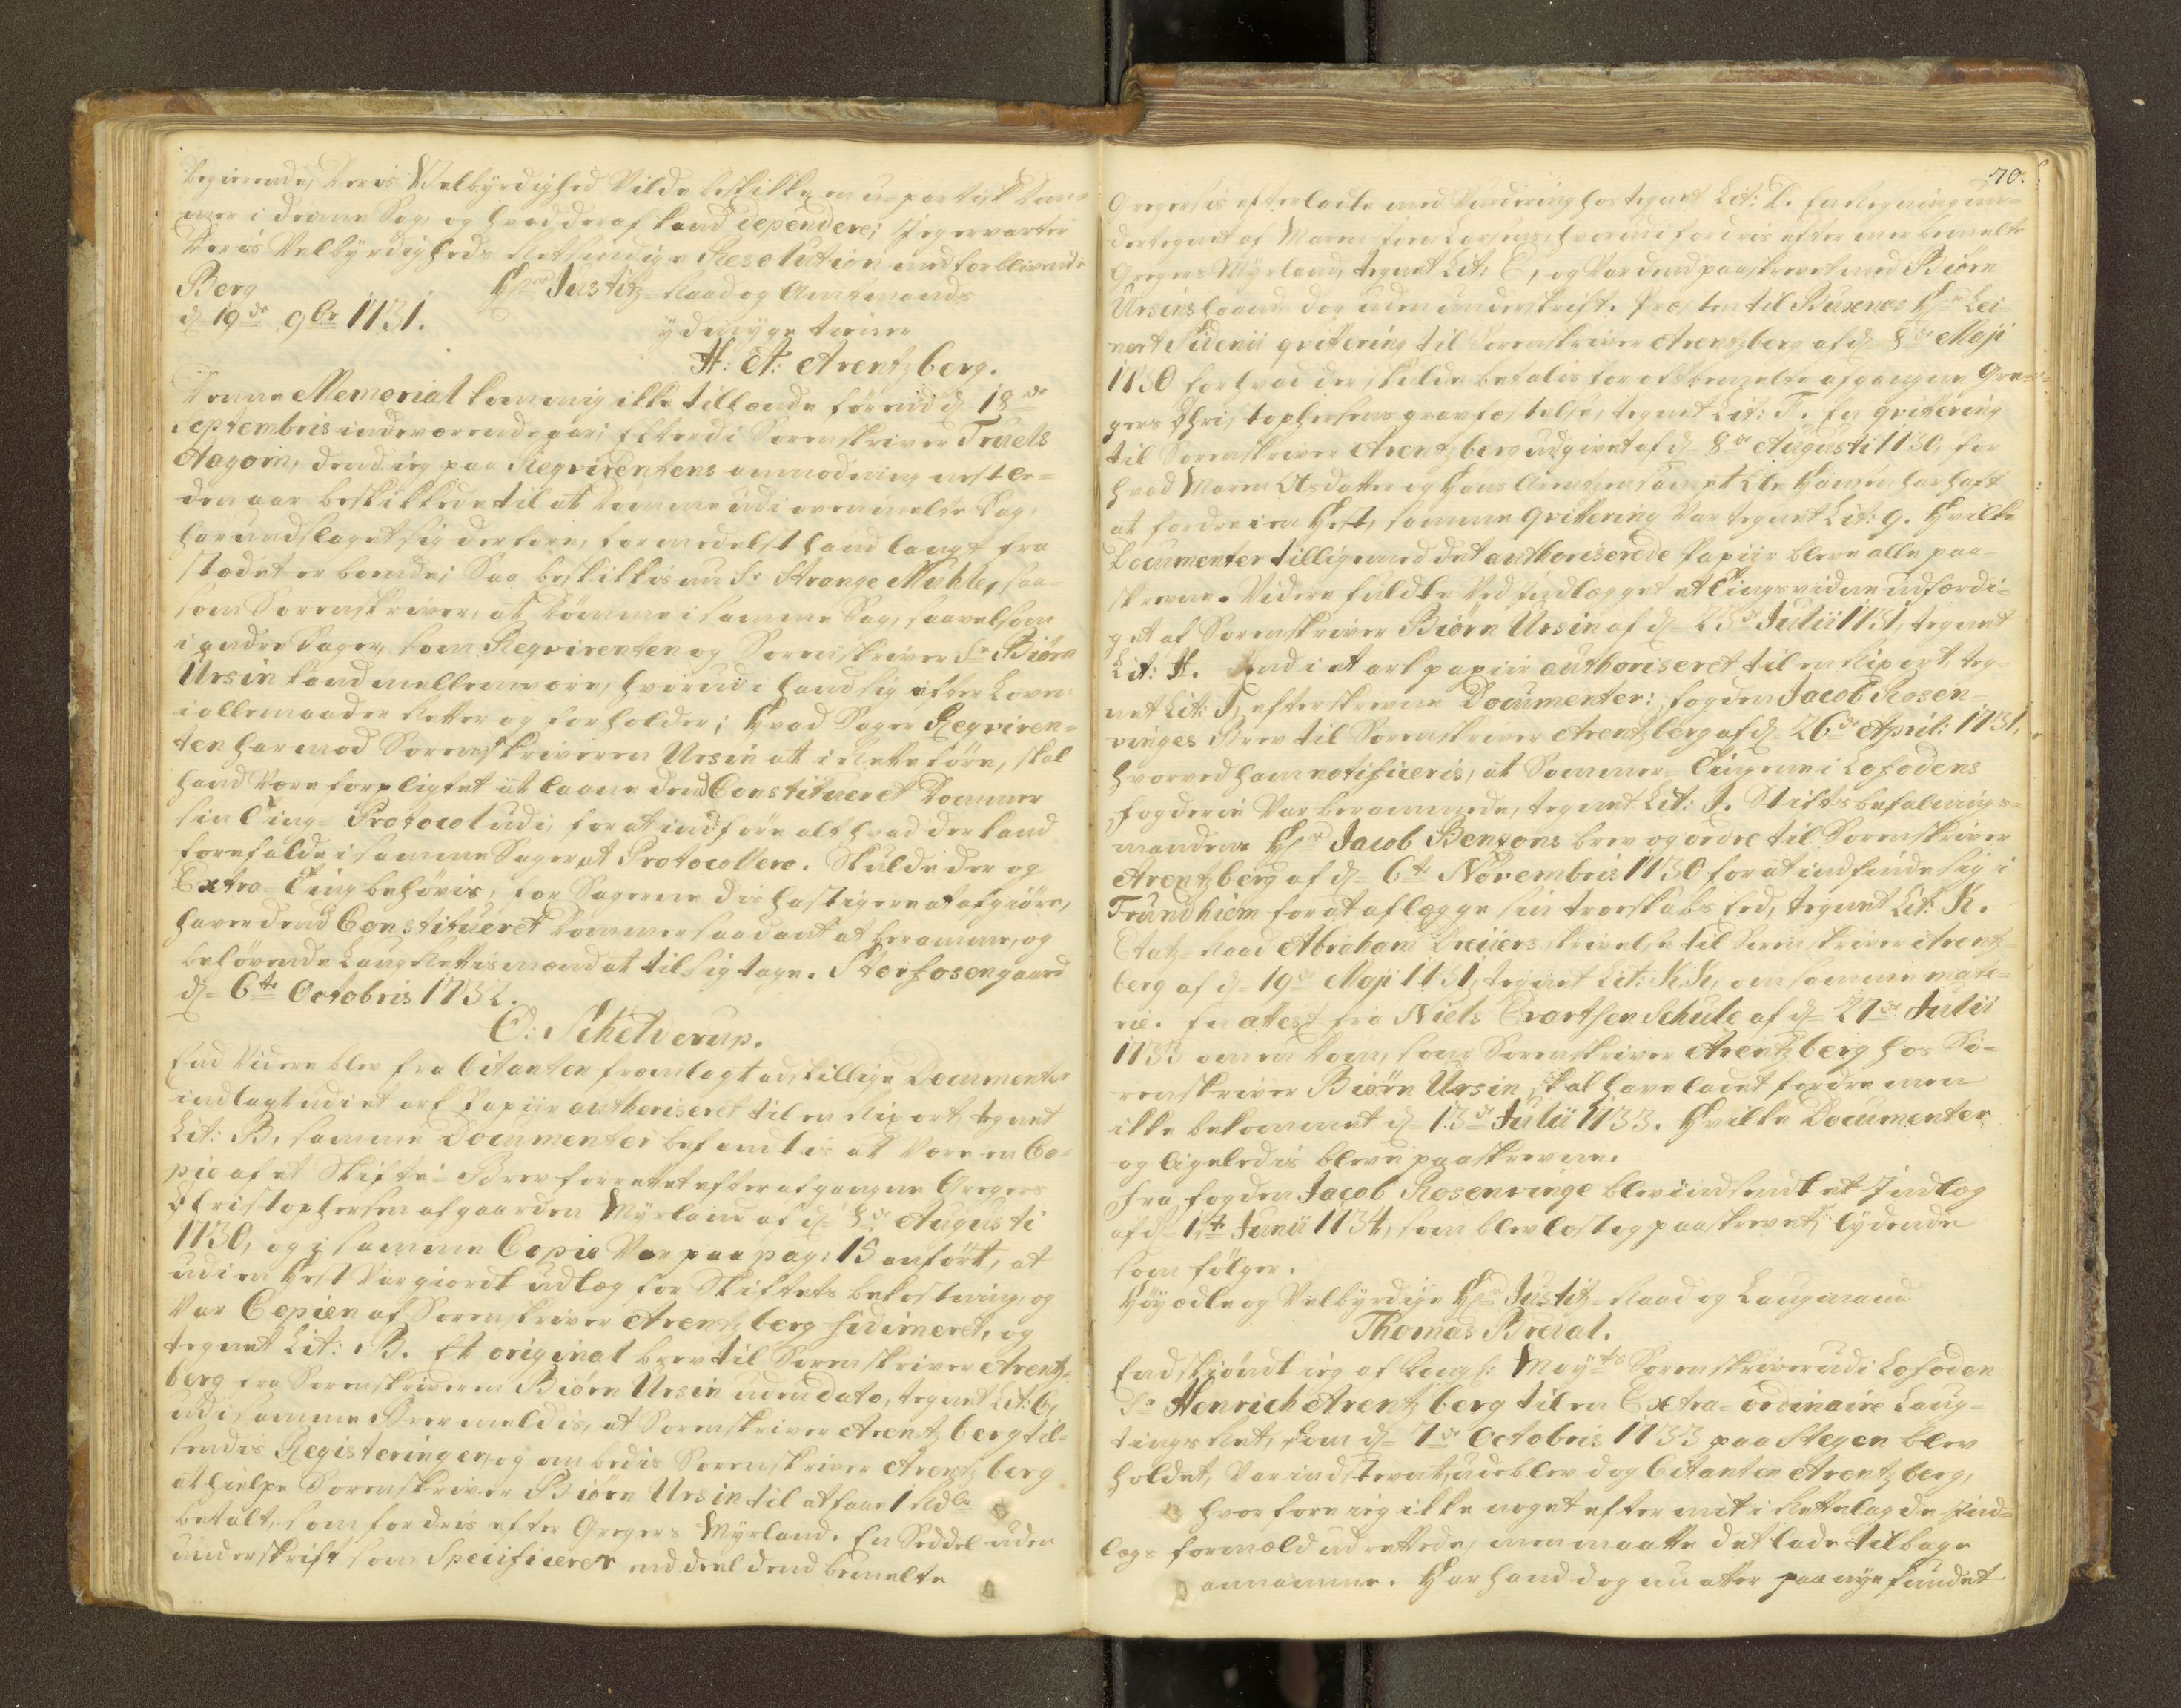 begierende, Deris Velbyrdighed Vilde beskikke en u-partisk Dom-
mer i denne Sag, og hvad deraf kand dependere; Jeg ervarter
Deris Velbyrdigheds Retsindige Resolution med forblivende
Berg Hr Justitz-Raad og Amtmands
d 19de 9br 1731. ydmyge tiener
H: A: Arentzberg.
Denne Memorial kom mig ikke tilhænde førend d 18de
Septembris indeværende aar; Efterdi Sorenskriver Truels
Aagorn, dend ieg paa Reqvirentens anmodning nestle-
den aar beskikkede til at Domme udi ovenmelte Sag,
har undslaget sig derfore, formedelst hand langt fra
stædet er boende; Saa beskikkis nu Sr Strange Muhle, saa-
som Sorenskriver, at Dømme i samme Sag, saavelsom
i andre Sager, som Reqvirenten og Sorenskriver Sr Biørn
Ursin kand mellem være, hvorudi hand sig efter Loven
i allemaader Retter og forholder; Hvad Sager Reqviren-
ten har mod Sorenskriveren Ursin at i Rette føre, skal
hand Være forpligtet at laane dend Constitueret Dommer
sin Ting-Protocol udi, for at indføre alt hvad der kand
forefalde i samme Sager at Protocollere. Skulde der og
Extra-Ting behøvis, for Sagerne dis hastigere at afgiøre,
haver dend Constitueret Dommer saadant at beramme, og
behøvende Laug Rettismænd at til sig tage. Storfosengaard
d 6te Octobris 1732.
O: Schelderup.
End Videre blev fra Citanten fremlagt adskillige Documenter
indlagt udi et ark Papiir authoriseret til en Riport, tegnet
Lit: B, samme Documenter befandtis at Være en Co-
pie af et Skifte-Brev forrettet efter afgangne Gregers
Christophersen af gaarden Myrland af d 8de Augusti
1730, og i samme Copie Var paa pag: 15 anført, at
udi en Hest Var giordt udlæg for Skiftets bekostning, og
Var Copien af Sorenskriver Arentzberg fidimeret, og
tegnet Lit: B. Et original brev til Sorenskriver Arentz-
berg fra Sorenskriveren Biørn Ursin uden dato, tegnet Lit: C,
udi samme Brev meldis, at Sorenskriver Arentzberg til-
sendis Registeringen, og ombedis Sorenskriver Arentzberg
at hielpe Sorenskriver Biørn Ursin til at faae 1 Rdlr
betalt, som fordris efter Gregers Myrland. En Seddel uden
underskrift som Specificerer en deel dend bemelte
70.
Gregersis efterladte med Vurdering hos tegnet Lit: D. En Regning un-
dertegnet af Maren Iver Larsens, hvorudi fordris efter meer bemelte
Gregers Myrland, tegnet Lit: E, og Var dend paaskrevet med Biørn
Ursins haand dog uden underskrift. Præsten til Buxnæs Hr Lei-
nert Sidenii qvitering til Sorenskriver Arentzberg af d 8de Maji
1730 for hvad der skulde betalis for oftbemelte afgangne Gre-
gers Christophersens gravfæstelse, tegnet Lit: F. En qvitering
til Sorenskriver Arentzberg udgivet af d 8de Augusti 1730, for
hvad Maren Olsdatter og Hans Arentzen sampt Ole Hansen har haft
at fordre i en Hest, samme qvitering Var tegnet Lit: G. Hvilke
Documenter tilligemed det authoriserede Papiir bleve alle paa-
skrevne. Videre fuldte Ved Indlægget et Tingsvidne udfærdi-
get af Sorenskriver Biørn Ursin af d 23de Julii 1731, tegnet
Lit: H. End i et ark papiir authoriseret til en Riport, teg-
net Lit: I, efterskrevne Documenter: fogden Jacob Rosen-
vinges Brev til Sorenskriver Arentzberg af d 26de April: 1731,
hvorved ham notificeris, at Sommer-Tingene i Lofodens
fogderie Var berammede, tegnet Lit: I. Stiftsbefalings-
mandens Hr Jacob Benzons brev og ordre til Sorenskriver
Arentzberg af d 6te Novembris 1730 for at indfinde sig i
Trundhiem for at aflægge sin troeskabs Eed, tegnet Lit: K.
Etatz-Raad Abraham Dreiiers skrivelse til Sorenskriver Arentz-
berg af d 19de Maji 1731, tegnet Lit: K.K, om samme mate-
rie. En attest fra Niels Evartsen Schule af d 27de Julii
1733 om en Dom, som Sorenskriver Arentzberg hos So-
renskriver Biørn Ursin skal have ladet fordre men
ikke bekommet d 13de Julii 1733. Hvilke Documenter
og ligeledis bleve paaskrevne.
Fra fogden Jacob Rosenvinge blev indsendt et Indlæg
af d 1ste Junii 1734, som blev læst og paaskrevet, lydende
som følger.
Høyædle og Velbyrdige Hr Justitz-Raad og Laugmand
Thomas Breval.
Endskiøndt ieg af Kongl: Mayts Sorenskriver udi Lofoden
Sr Henrich Arentzberg til en Extra-ordinaire Laug-
tings Ret, som d 7de Octobris 1733 paa Stegen blev
holdet, Var indstevnt, udeblev dog Citanten Arentzberg,
hvorfore ieg ikke noget efter mit i Rettelagde Ind-
lægs formæld udrettede, men maatte det lade tilbage
annamme. Har hand dog nu atter paa nye fundet